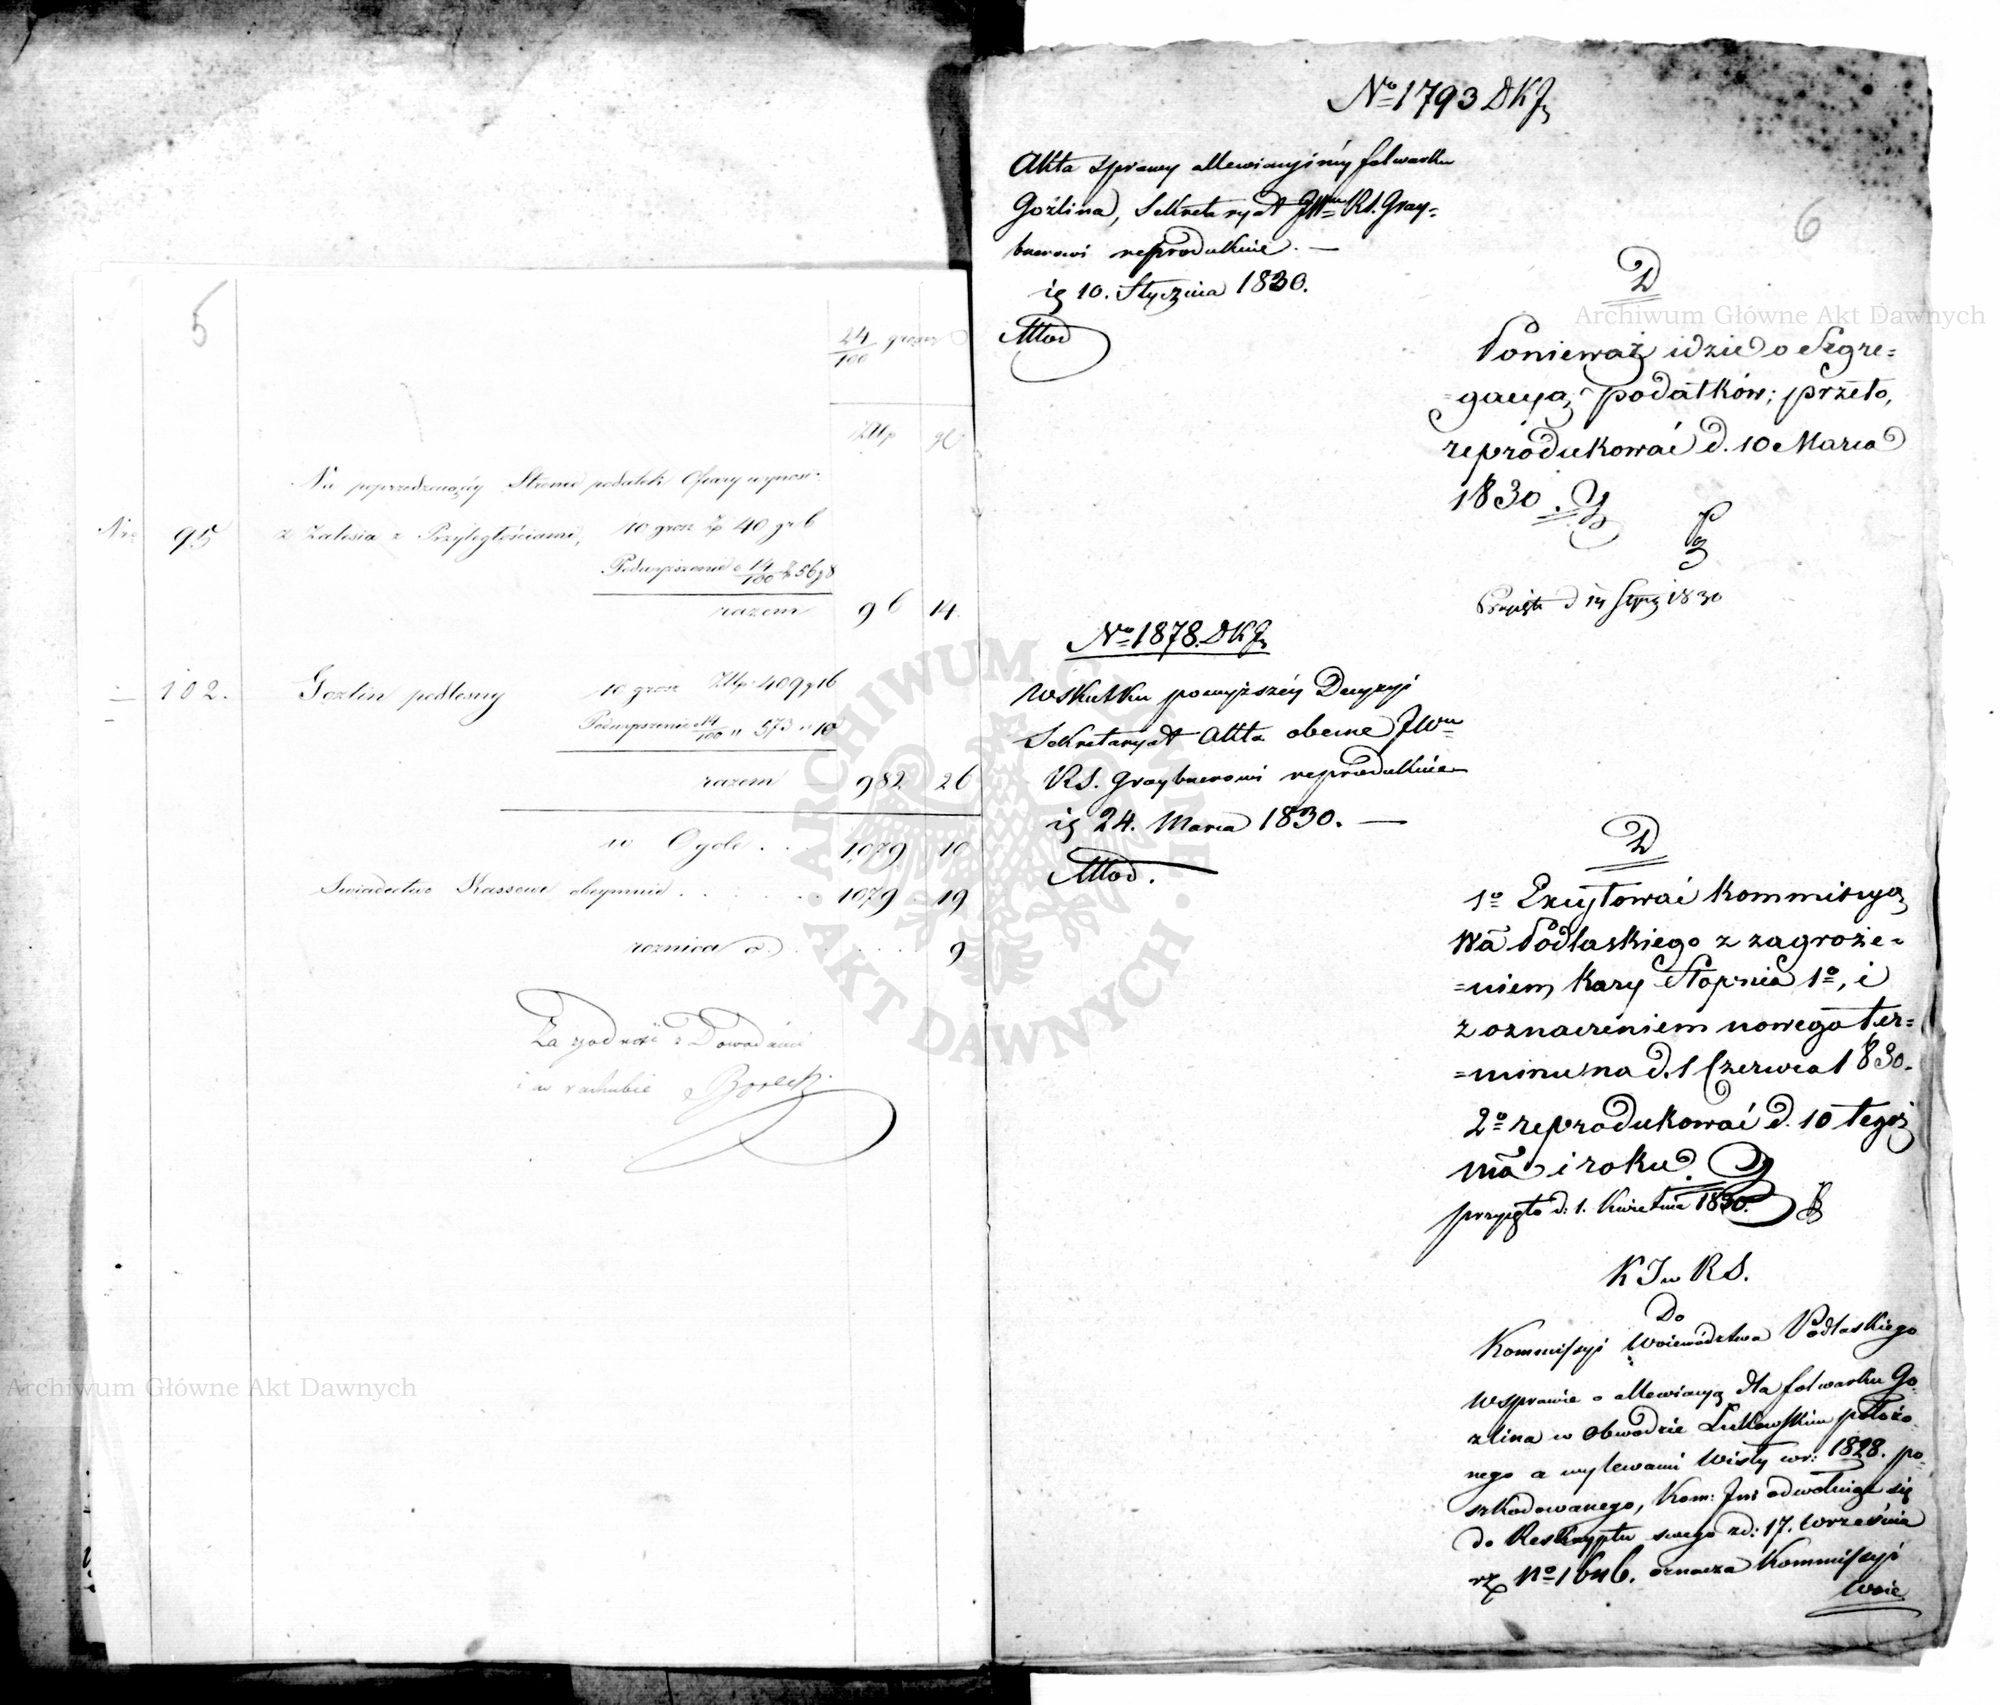 5
24/100 groszy
Złlp gr
Na poprzedzaiący Stronie podatek Ofiary wynosi
Nro 95 z Zalesia z Przyległościami, 10 grosz Zp 40 gr 6
Podwyższenie a 14/100 Zp 56 g 8
razem 96 14.
102. Gozlin podlesny 10 grosz Złp. 409 g 16
Podwyższenie 14/100 " 573 " 10
razem 982 26
w Ogole . . . 1,079 10
Swiadectwo Kassowe obeymuie . . . . . . 1079 19
roznica o . . . . . . 9
Za zgodność z Dowodami
i w rachubie
Archiwum Główne Akt Dawnych
6
No 1793 DKJ
Akta sprawy allewiacyiney folwarku
Goźlina, Sekretaryat JWu RS. Gray=
bnerowi reprodukuie. —
ig 10. Stycznia 1830.
Młod
D
Ponieważ idzie o Segre=
=gacyą podatków; przeto,
reprodukować d. 10 Marca
1830.
Przyięto d 14 Stycz 1830
No 1878. DKJ
Wskutku powyższéy Decyzyi
Sekretaryat Akta obecne JWu
RS. Graybnerowi reprodukuie
ig 24. Marca 1830. —
Młod.
D
1o Excytować Kommissyą
Wa Podlaskiego z zagroże=
=niem kary Stopnia 1o, i
z oznaczeniem nowego ter=
=minu na d. 1 Czerwca 1830.
2o reprodukować d. 10 tegoż
ma i roku.
przyięto d: 1. Kwietnia 1830.
K J w R S.
Do
Kommissyi Woiewództwa Podlaskiego
W sprawie o allewiacyą dla folwarku Go=
zlina w Obwodzie Łukowskim położo=
nego a wylewami Wisły w r: 1828. po=
szkodowanego, Kom: Jni odwołuiąc się
do Reskryptu swego z d: 17. Września
rz No 1646. oznacza Kommissyi
Woie
Archiwum Główne Akt Dawnych
ARCHIWUM GŁÓWNE · AKT DAWNYCH ·